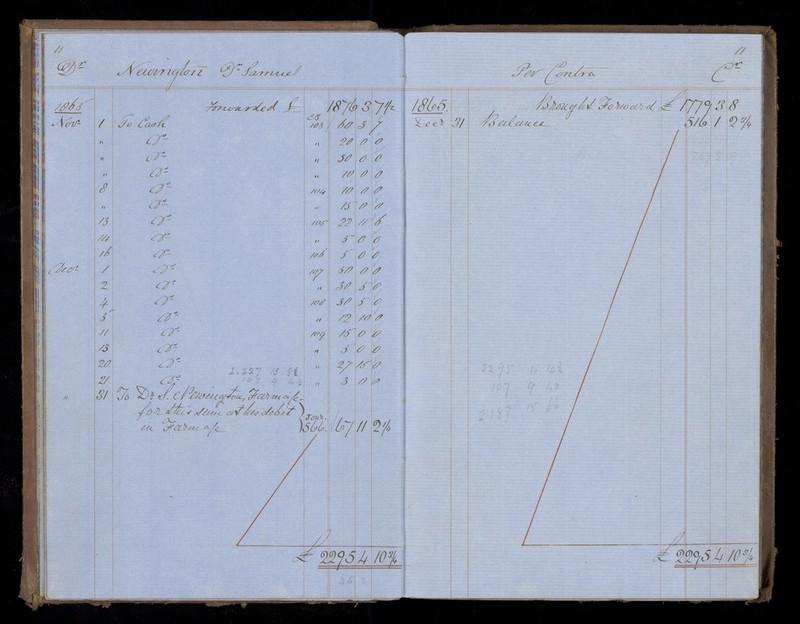 11
Dr Newington Dr Samuel
1865 Forwarded £ 1876 3 7½
Nov 1 To Cash CB 103 60 3 7
" Do " 20 0 0
" Do " 30 0 0
" Do " 10 0 0
8 Do 104 10 0 0
" Do " 15 0 0
13 Do 105 22 11 6
14 Do " 5 0 0
16 Do 106 5 0 0
Decr 1 Do 107 50 0 0
2 Do " 30 5 0
4 Do 108 30 5 0
5 Do " 12 10 0
11 Do 109 15 0 0
13 Do " 5 0 0
20 Do " 27 15 0
21 Do " 3 0 0
" 31 To Dr S. Newington, Farm a/c
for this sum at his debit
in Farm a/c Jour. 566 67 11 2¼
£ 2295 4 10¾
11
Per Contra Cr
1865 Brought Forward £ 1779 3 8
Decr 31 Balance 516 1 2¾
2295 4
107 9
2187 15
£ 2295 4 10¾